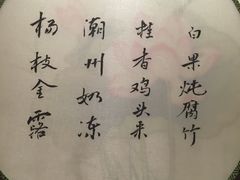 白果炖腐竹
桂香鸡头米
潮州奶冻
杨枝金露